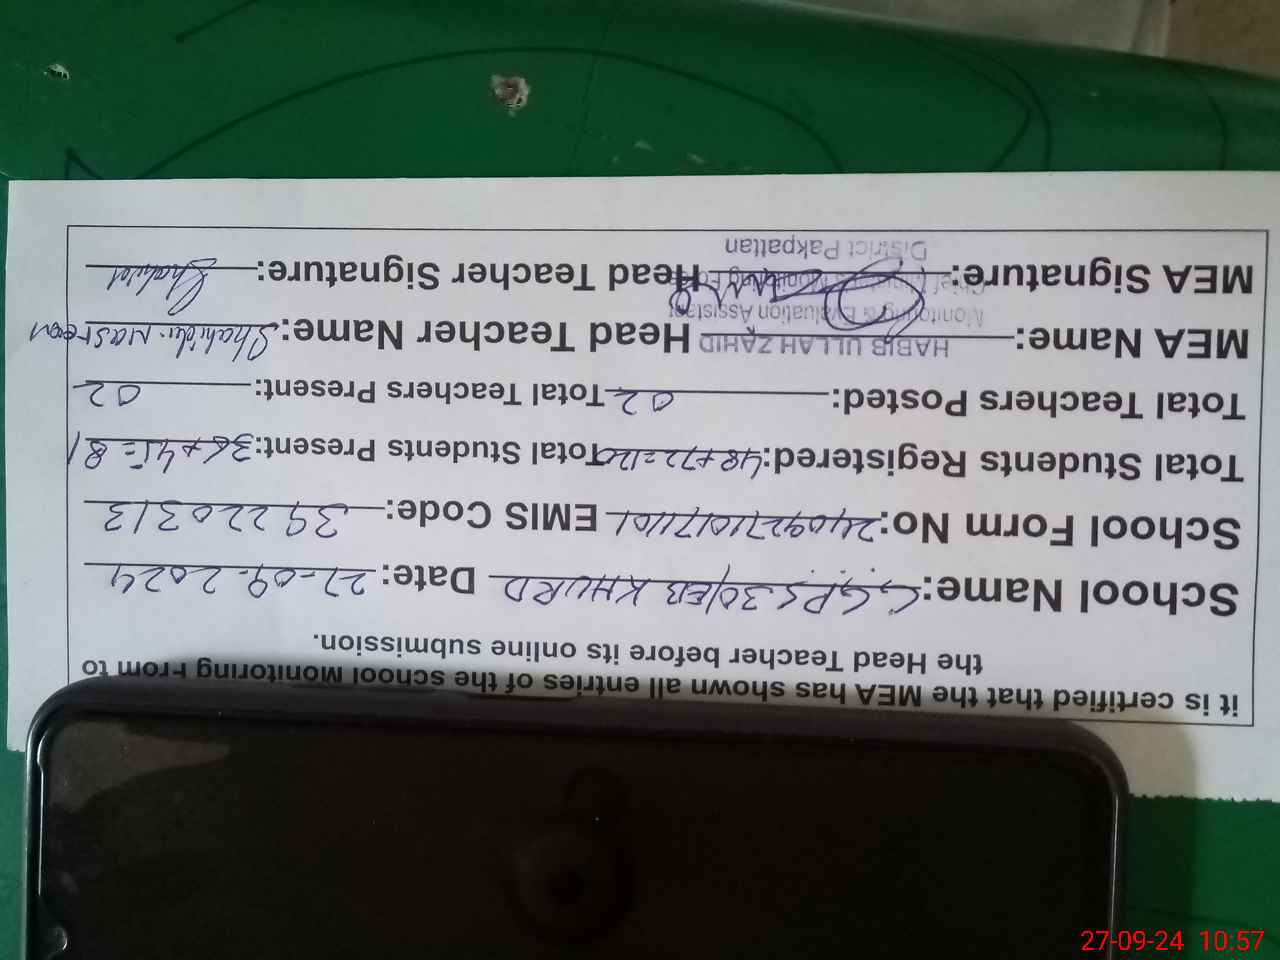 it is certified that the MEA has shown all entries of the school Monitoring From to
the Head Teacher before its online submission.
School Name: GGPS 30/EB KHURD Date: 27-09-2024
School Form No: 24092710171101 EMIS Code: 39220313
Total Students Registered: 48+72=120 Total Students Present: 36+45=81
Total Teachers Posted: 02 Total Teachers Present: 02
MEA Name: HABIB ULLAH ZAHID Head Teacher Name: Shahida Nasreen
Monitoring & Evaluation Assistant
MEA Signature: Head Teacher Signature: Shahida
Chief Minister's Monitoring
District Pakpattan
27-09-24 10:57